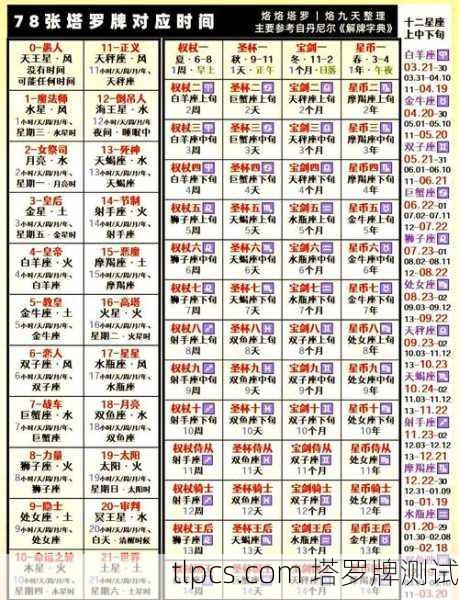 78张塔罗牌对应时间
烙烙塔罗 | 烙九天整理
主要参考自丹尼尔《解牌字典》
0-愚人
天王星·风
没有时间
可能任何时间
11-正义
天秤座·风
11小时/天/周/月/年、
天秤座
1-魔法师
水星·风
1小时/天/周/月/年、
星期三·水星时
12-倒吊人
海王星·水
12小时/天/周/月/年、
夜间·睡眠中
2-女祭司
月亮·水
2小时/天/周/月/年、
星期一·月亮时
13-死神
天蝎座·水
13小时/天/周/月/年、
天蝎座
3-皇后
金星·土
3小时/天/周/月/年、
星期五·金星时
14-节制
射手座·火
14小时/天/周/月/年、
射手座
4-皇帝
白羊座·火
4小时/天/周/月/年、
白羊座
15-恶魔
摩羯座·土
15小时/天/周/月/年、
摩羯座
5-教皇
金牛座·土
5小时/天/周/月/年、
金牛座
16-高塔
火星·火
16小时/天/周/月/年、
星期二·火星时
6-恋人
双子座·风
6小时/天/周/月/年、
双子座
17-星星
水瓶座·风
17小时/天/周/月/年、
水瓶座
7-战车
巨蟹座·水
7小时/天/周/月/年、
巨蟹座
18-月亮
双鱼座·水
18小时/天/周/月/年、
双鱼座
8-力量
狮子座·火
8小时/天/周/月/年、
狮子座
19-太阳
太阳·火
19小时/天/周/月/年、
9-隐士
处女座·土
9小时/天/周/月/年、
处女座
20-审判
冥王星·火
20小时/天/周/月/年、
白天·清醒时候
10-命运之轮
木星·火
21-世界
权杖一 圣杯一 宝剑一 星币一
夏·6-8 秋·9-11 冬·11-2 春·3-4
1周·早上 1天·正午 1个月·日落 1年·午夜
权杖二 圣杯二 宝剑二 星币二
白羊座上旬 巨蟹座上旬 天秤座上旬 摩羯座上旬
2周 2天 2个月 2年
权杖三 圣杯三 宝剑三 星币三
白羊座中旬 巨蟹座中旬 天秤座中旬 摩羯座中旬
3周 3天 3个月 3年
权杖四 圣杯四 宝剑四 星币四
白羊座下旬 巨蟹座下旬 天秤座下旬 摩羯座下旬
4周 4天 4个月 4年
权杖五 圣杯五 宝剑五 星币五
狮子座上旬 天蝎座上旬 水瓶座上旬 金牛座上旬
5周 5天 5个月 5年
权杖六 圣杯六 宝剑六 星币六
狮子座中旬 天蝎座中旬 水瓶座中旬 金牛座中旬
6周 6天 6个月 6年
权杖七 圣杯七 宝剑七 星币七
狮子座下旬 天蝎座下旬 水瓶座下旬 金牛座下旬
7周 7天 7个月 7年
权杖八 圣杯八 宝剑八 星币八
射手座上旬 双鱼座上旬 双子座上旬 处女座上旬
8周 8天 8年
权杖九 圣杯九 宝剑九 星币九
射手座中旬 双鱼座中旬 双子座中旬 处女座中旬
9周 9天 9年
权杖十 圣杯十 宝剑十 星币十
射手座下旬 双鱼座下旬 双子座下旬 处女座下旬
10周 10天 10个月 10年
权杖侍从 圣杯侍从 宝剑侍从 星币侍从
射手座 双鱼座 双子座 处女座
11周 11天 11个月 11年
权杖骑士 圣杯骑士 宝剑骑士 星币骑士
12周 12天 12个月 12年
权杖王后 圣杯王后 宝剑王后 星币王后
13周
十二星座
上中下旬
白羊座
03.21-30
03.31-04.10
11-04.19
金牛座
04.20-30
05.01-05.10
11-05.20
双子座
05.21-31
06.01-06.10
11-06.21
巨蟹座
06.22-30
07.02-07.11
12-07.22
狮子座
07.23-08.01
08.02-08.11
12-08.22
处女座
08.23-09.02
09.03-09.12
13-09.22
天秤座
09.23-10.02
10.03-11.12
13-10.23
天蝎座
10.24-11.02
11.03-11.12
13-11.22
射手座
11.23-12.02
12.03-12.12
13-12.21
摩羯座
12.22-12.31
01.01-01.09
10-01.19
水瓶座
01.20-29
01.30-02.08
09-02.18
双鱼座
tlpcs.com 塔罗牌测试